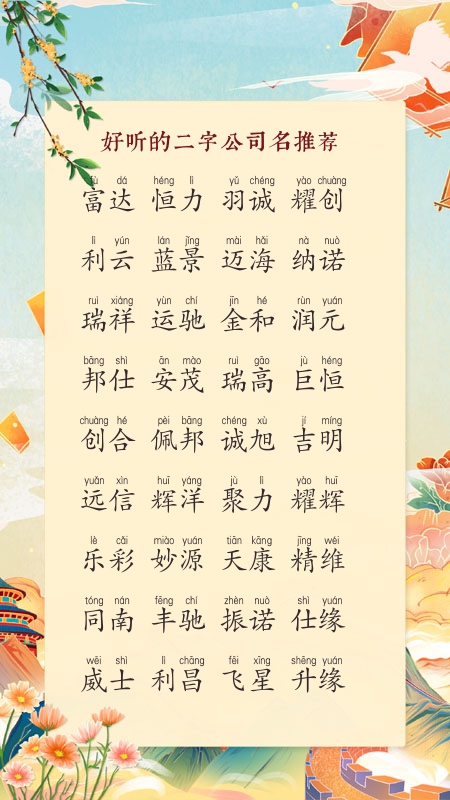 好听的二字公司名推荐
fù dá héng lì yǔ chéng yào chuàng
富达 恒力 羽诚 耀创
lì yún lán jǐng mài hǎi nà nuò
利云 蓝景 迈海 纳诺
ruì xiáng yùn chí jīn hé rùn yuán
瑞祥 运驰 金和 润元
bāng shì ān mào ruì gāo jù héng
邦仕 安茂 瑞高 巨恒
chuàng hé pèi bāng chéng xù jí míng
创合 佩邦 诚旭 吉明
yuǎn xìn huī yáng jù lì yào huī
远信 辉洋 聚力 耀辉
lè cǎi miào yuán tiān kāng jīng wéi
乐彩 妙源 天康 精维
tóng nán fēng chí zhèn nuò shì yuán
同南 丰驰 振诺 仕缘
wēi shì lì chāng fēi xīng shēng yuán
威士 利昌 飞星 升缘